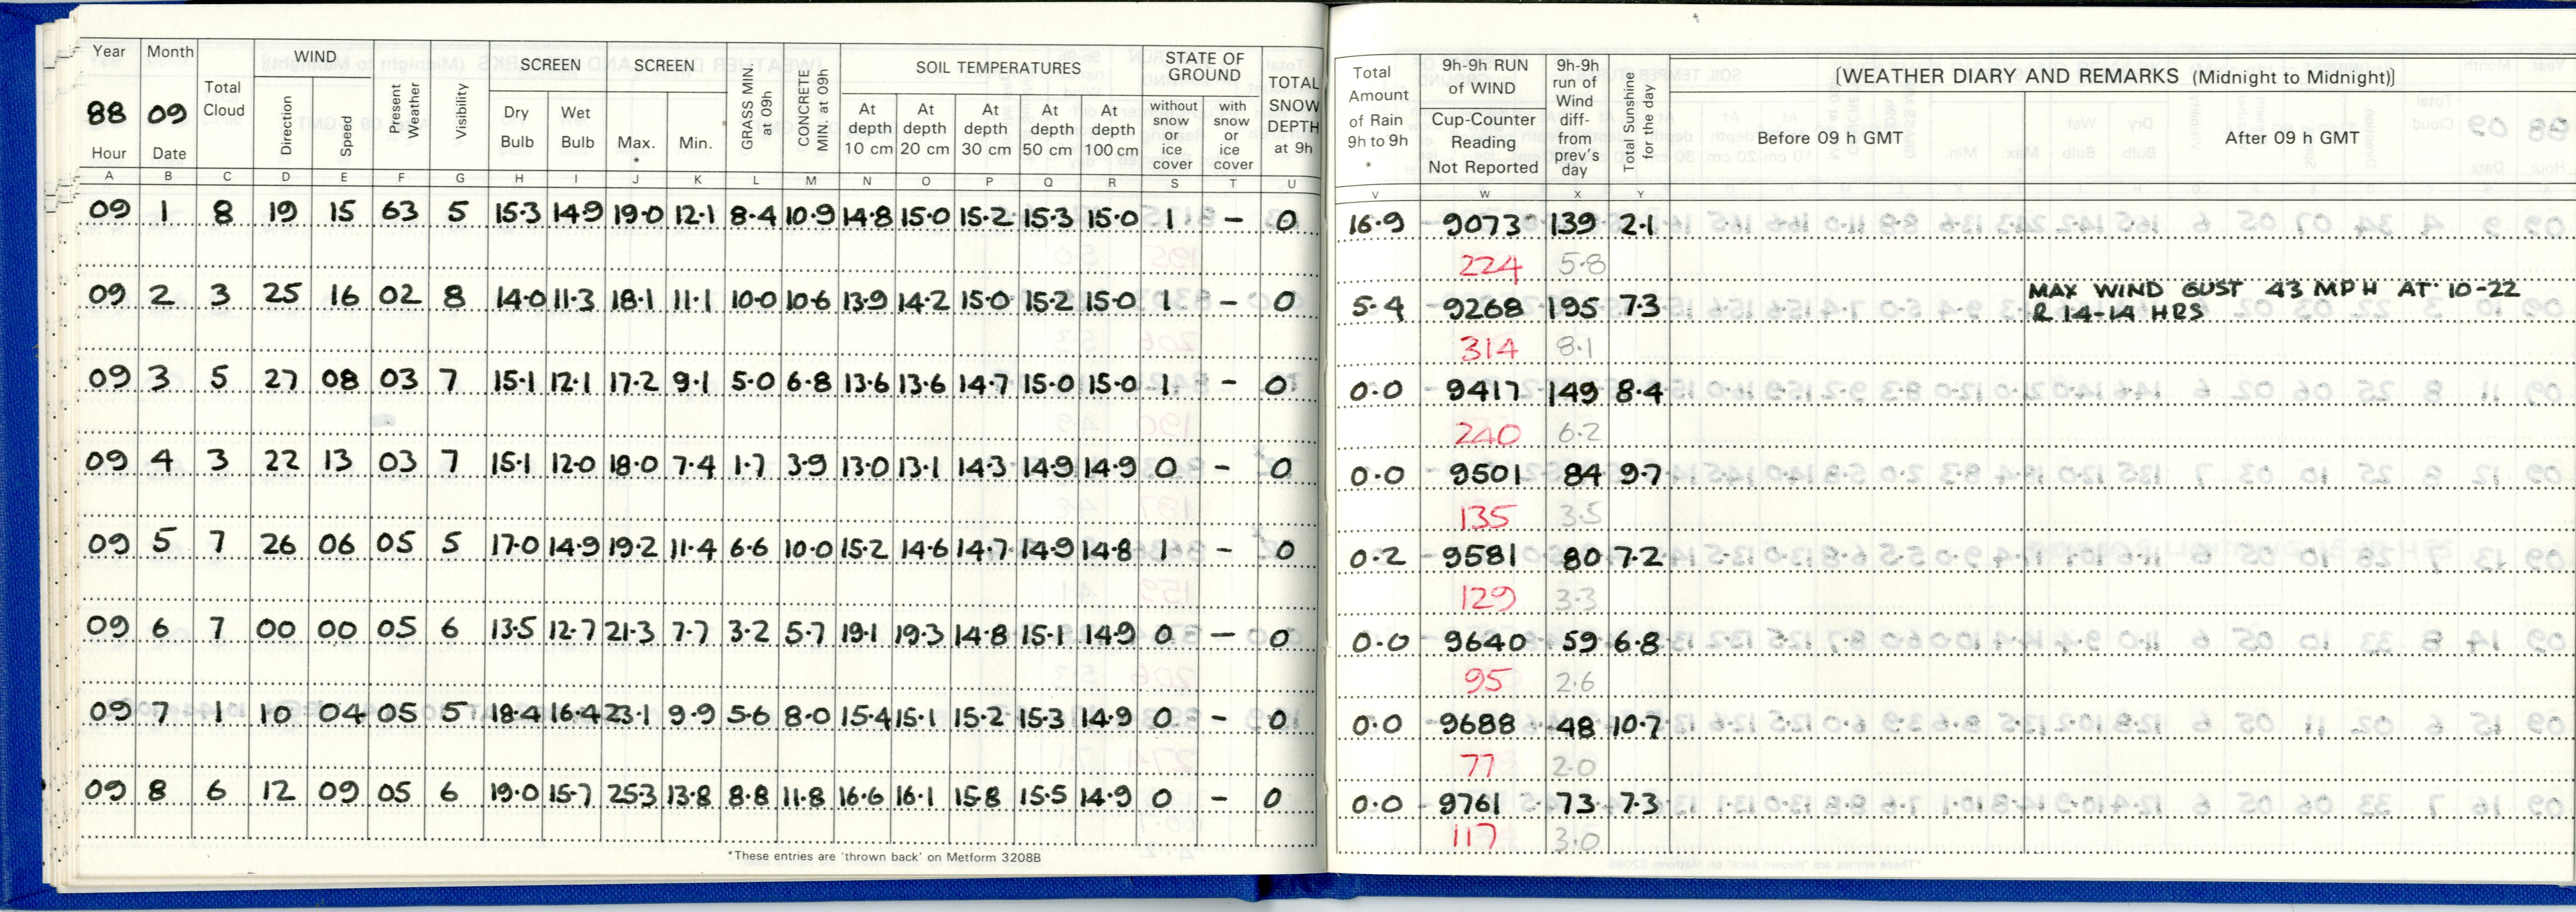 Year Month Total Cloud WIND Present Weather Visibility SCREEN SCREEN GRASS MIN at 09h CONCRETE MIN. at 09h SOIL TEMPERATURES STATE OF GROUND TOTAL SNOW DEPTH at 9h
88 09 Direction Speed Dry Bulb Wet Bulb Max. * Min. At depth 10 cm At depth 20 cm At depth 30 cm At depth 50 cm At depth 100 cm without snow or ice cover with snow or ice cover
Hour Date
A B C D E F G H I J K L M N O P Q R S T U
09 1 8 19 15 63 5 15.3 14.9 19.0 12.1 8.4 10.9 14.8 15.0 15.2 15.3 15.0 1 – 0
09 2 3 25 16 02 8 14.0 11.3 18.1 11.1 10.0 10.6 13.9 14.2 15.0 15.2 15.0 1 – 0
09 3 5 27 08 03 7 15.1 12.1 17.2 9.1 5.0 6.8 13.6 13.6 14.7 15.0 15.0 1 – 0
09 4 3 22 13 03 7 15.1 12.0 18.0 7.4 1.7 3.9 13.0 13.1 14.3 14.9 14.9 0 – 0
09 5 7 26 06 05 5 17.0 14.9 19.2 11.4 6.6 10.0 15.2 14.6 14.7 14.9 14.8 1 – 0
09 6 7 00 00 05 6 13.5 12.7 21.3 7.7 3.2 5.7 19.1 19.3 14.8 15.1 14.9 0 – 0
09 7 1 10 04 05 5 18.4 16.4 23.1 9.9 5.6 8.0 15.4 15.1 15.2 15.3 14.9 0 – 0
09 8 6 12 09 05 6 19.0 15.7 25.3 13.8 8.8 11.8 16.6 16.1 15.8 15.5 14.9 0 – 0
*These entries are 'thrown back' on Metform 3208B
Total Amount of Rain 9h to 9h * 9h-9h RUN of WIND Cup-Counter Reading Not Reported 9h-9h run of Wind diff- from prev's day Total Sunshine for the day [WEATHER DIARY AND REMARKS (Midnight to Midnight)]
Before 09 h GMT After 09 h GMT
V W X Y
16.9 9073 139 2.1
224 5.8
5.4 9268 195 7.3 MAX WIND GUST 43 MPH AT 10-22
& 14-14 HRS
314 8.1
0.0 9417 149 8.4
240 6.2
0.0 9501 84 9.7
135 3.5
0.2 9581 80 7.2
129 3.3
0.0 9640 59 6.8
95 2.6
0.0 9688 48 10.7
77 2.0
0.0 9761 73 7.3
117 3.0